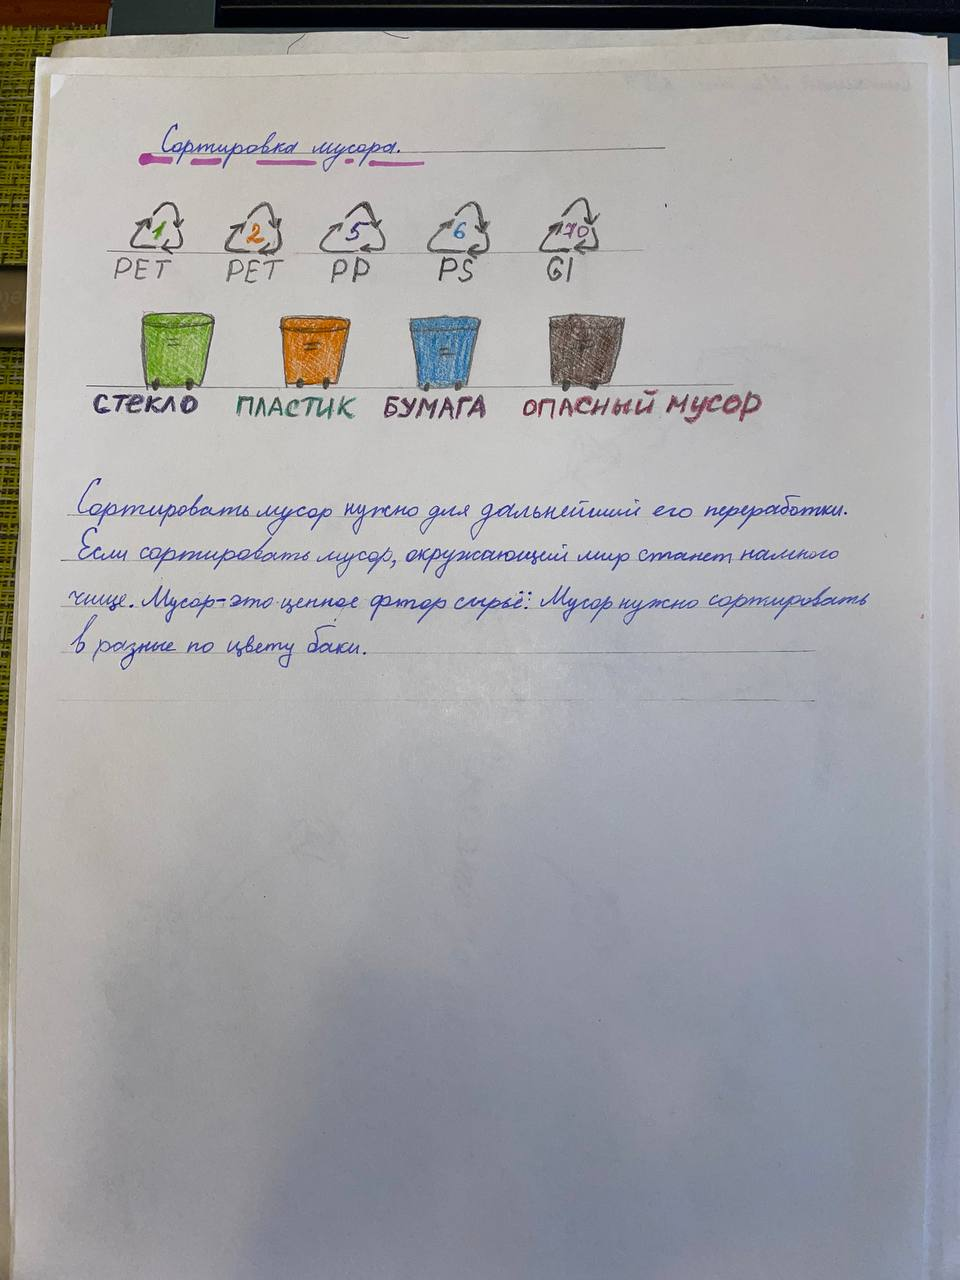 Сортировка мусора.
1 2 5 6 70
PET PET PP PS Gl
СТЕКЛО ПЛАСТИК БУМАГА ОПАСНЫЙ МУСОР
Сортировать мусор нужно для дальнейший его переработки.
Если сортировать мусор, окружающий мир станет намного
чище. Мусор-это ценное фтор сырьё: Мусор нужно сортировать
в разные по цвету баки.